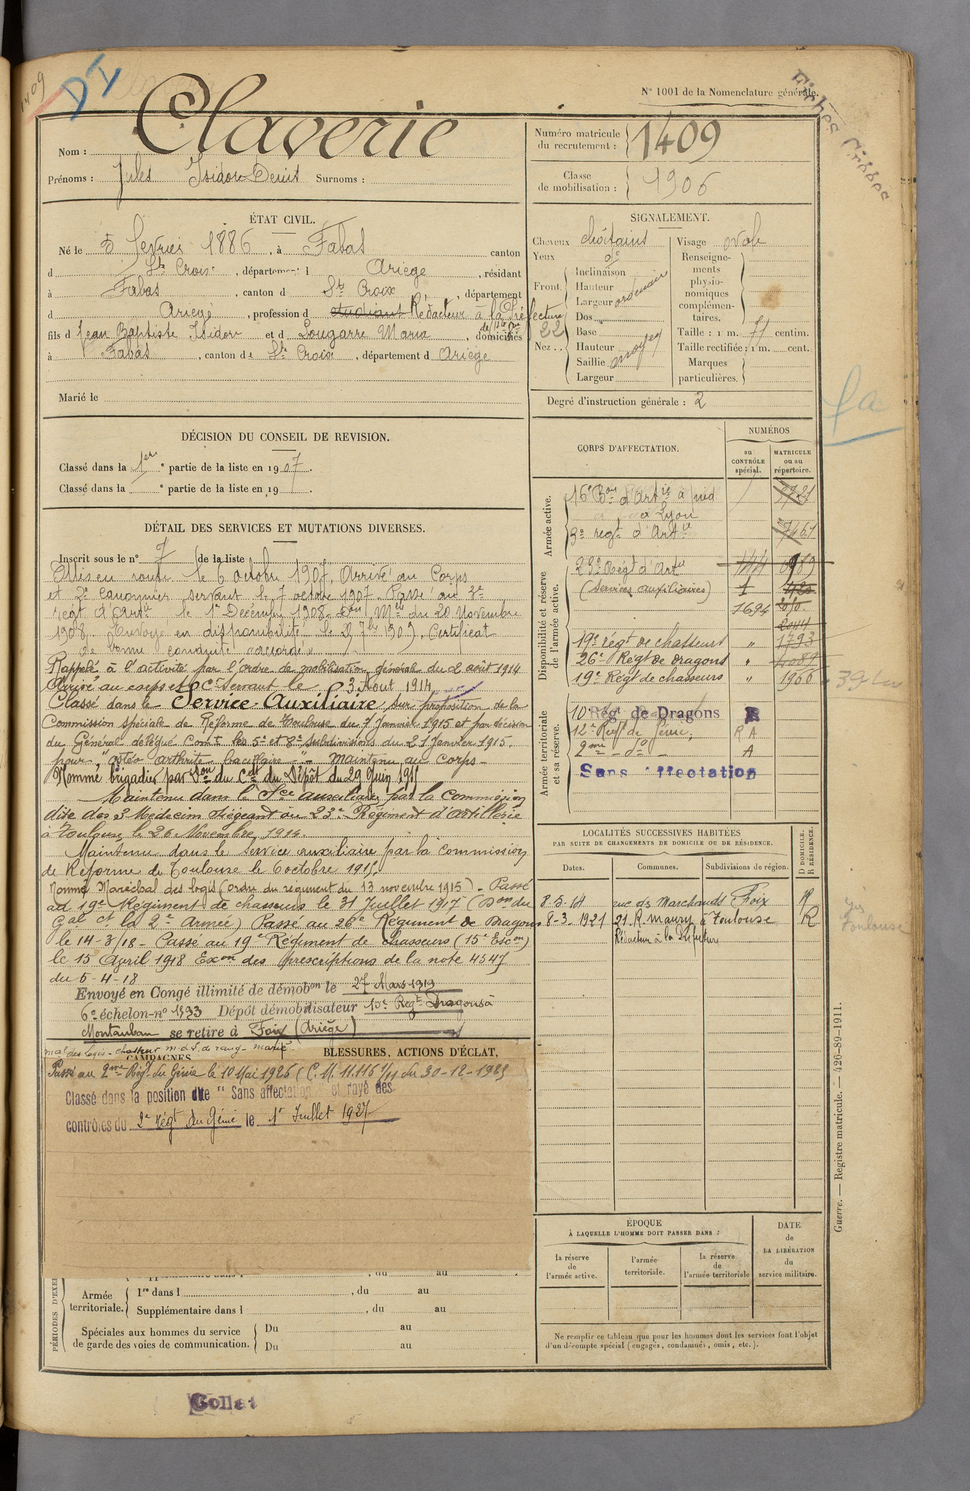 1409
DI
N° 1001 de la Nomenclature générale.
Fiches
Nom : Claverie
Prénoms : Jules Isidore Denis Surnoms :
Numéro matricule du recrutement : 1409
Classe de mobilisation : 1906
ÉTAT CIVIL.
Né le 5 février 1886, à Fabas canton
d Ste Croix, département d Ariège, résidant
à Fabas, canton d Ste Croix, département
d Ariège, profession d étudiant Rédacteur à la Préfecture
fils d Jean Baptiste Isidore et d Lougarre Maria, domiciliés
à Fabas, canton d Ste Croix, département d Ariège
Marié le
SIGNALEMENT.
Cheveux châtains
Yeux
Front. Inclinaison
Hauteur
Largeur ordinaire
Nez. Dos
Base
Hauteur
Saillie moyen
Largeur
Visage ovale
Renseignements physionomiques complémentaires.
Taille : 1 m. 71 centim.
Taille rectifiée : 1 m. cent.
Marques particulières.
Degré d'instruction générale : 2
DÉCISION DU CONSEIL DE REVISION.
Classé dans la 1ère partie de la liste en 1907.
Classé dans la e partie de la liste en 19 .
DÉTAIL DES SERVICES ET MUTATIONS DIVERSES.
Inscrit sous le n° 7 de la liste
Mis en route le 6 octobre 1907. Arrivé au Corps
et 2e canonnier servant le 7 octobre 1907. Passé au 3e
régt d'Artie le 1er Décembre 1908. Don Mlle du 20 Novembre
1908. Envoyé en disponibilité le 1909. Certificat
de bonne conduite accordé.
Rappelé à l'activité par l'ordre de mobilisation générale du 2 août 1914
Arrivé au corps et 2e Ct servant le 3 Août 1914
Classé dans le Service Auxiliaire sur proposition de la
Commission spéciale de Réforme de Toulouse du 7 Janvier 1915 et par décision
du Général délégué Comt les 5e et 8e subdivisions du 21 Janvier 1915.
pour "ostéo arthrite bacillaire" - Maintenu au Corps -
Nommé brigadier par Don du Cdt du Dépôt du 29 Juin 1915
Maintenu dans le Sce auxiliaire par la Commission
dite des 3 Médecins siégeant au 23e Régiment d'artillerie
à Toulouse le 26 Novembre 1914.
Maintenu dans le service auxiliaire par la Commission
de Réforme de Toulouse le 6 octobre 1915
Nommé Maréchal des logis (ordre du régiment du 13 novembre 1915) - Passé
au 19e Régiment de chasseurs le 31 Juillet 1917 (Don du
Gal Ct la 2e Armée) Passé au 26e Régiment de Dragons
le 14-3/18 - Passé au 19e Régiment de chasseurs (15e Escon)
le 15 Avril 1918 Exon des prescriptions de la note 4547
du 5-4-18
Envoyé en Congé illimité de démobon le 27 Mars 1919
6e échelon - n° 1533 Dépôt démobilisateur 10e Regt Dragons à
Montauban se retire à Foix (Ariège)
mal des logis - chasseur m.d.l. de rang - marié
CAMPAGNES
BLESSURES, ACTIONS D'ÉCLAT,
Passé au 2me Régt du Génie le 10 Mai 1926 (C.M. 11.116 1/11 du 30-12-1925
Classé dans la position dite "Sans affectation" et rayé des
contrôles du 2e Régt du Génie le 1er Juillet 1927
PÉRIODES
Armée territoriale. 1re dans l , du au
Supplémentaire dans l , du au
Spéciales aux hommes du service de garde des voies de communication. Du au
Du au
CORPS D'AFFECTATION.
NUMÉROS
au CONTRÔLE spécial.
MATRICULE ou au répertoire.
Armée active.
16e Bon d'Artie à pied
à Lyon
3e régt d'Artie 7467
Disponibilité et réserve de l'armée active.
23e Régt d'Artie 144
(Services auxiliaires) 1
1694
19e régt de chasseurs " 1793
26e Régt de Dragons "
19e Régt de chasseurs " 1960
Armée territoriale et sa réserve.
10e Rég. de Dragons R
12e Régt du Génie, R A
2me - do - A
Sans affectation
LOCALITÉS SUCCESSIVES HABITÉES
PAR SUITE DE CHANGEMENTS DE DOMICILE OU DE RÉSIDENCE.
D DOMICILE. R RÉSIDENCE.
Dates. Communes. Subdivisions de région.
rue des Marchands Foix R
8-3-1921 21 R. Maury à Toulouse R
Rédacteur à la Préfecture
Toulouse
ÉPOQUE
À LAQUELLE L'HOMME DOIT PASSER DANS :
la réserve de l'armée active.
l'armée territoriale.
la réserve de l'armée territoriale
DATE de LA LIBÉRATION du service militaire.
Ne remplir ce tableau que pour les hommes dont les services font l'objet
d'un décompte spécial (engagés, condamnés, omis, etc.).
Guerre. — Registre matricule. — 426-89-1911.
Collat